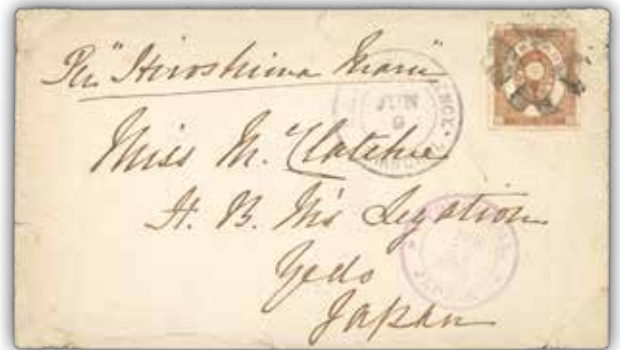 Per "Hiroshima Maru"
Miss McClatchie
H. B. M's Legation
Yedo
Japan
JUN
9